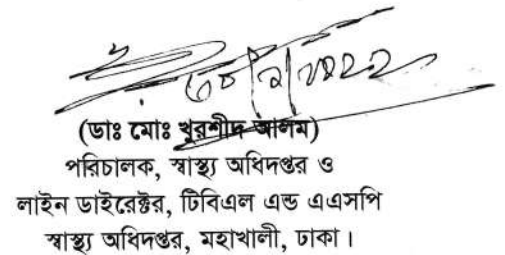 (ডাঃ মোঃ খুরশীদ আলম)
পরিচালক, স্বাস্থ্য অধিদপ্তর ও
লাইন ডাইরেক্টর, টিবিএল এন্ড এএসপি
স্বাস্থ্য অধিদপ্তর, মহাখালী, ঢাকা।